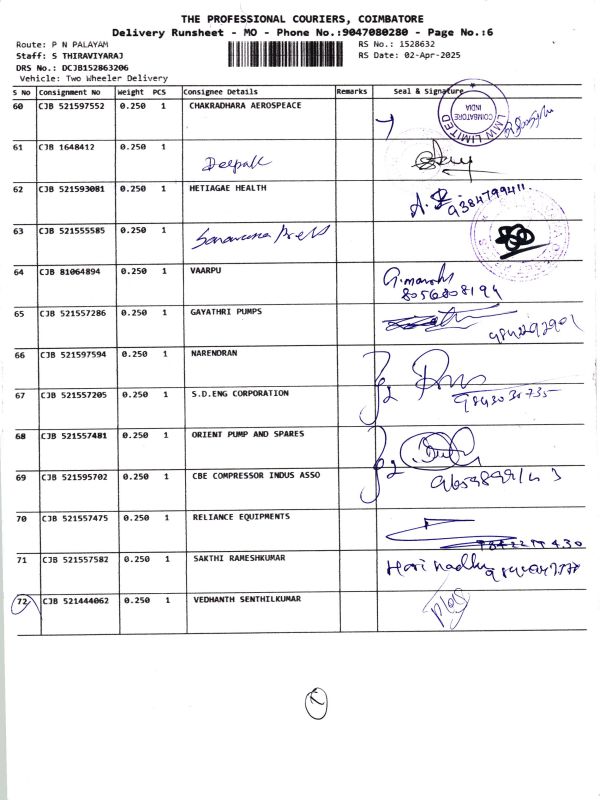 THE PROFESSIONAL COURIERS, COIMBATORE
Delivery Runsheet - MO - Phone No.:9047080280 - Page No.:6
Route: P N PALAYAM RS No.: 1528632
Staff: S THIRAVIYARAJ RS Date: 02-Apr-2025
DRS No.: DCJB152863206
Vehicle: Two Wheeler Delivery
S No Consignment No Weight PCS Consignee Details Remarks Seal & Signature
60 CJB 521597552 0.250 1 CHAKRADHARA AEROSPEACE
LMW LIMITED COIMBATORE INDIA
61 CJB 1648412 0.250 1 Deepak
62 CJB 521593081 0.250 1 HETIAGAE HEALTH 9384799411
63 CJB 521555585 0.250 1 Saravana Press
64 CJB 81064894 0.250 1 VAARPU
8056808194
65 CJB 521557286 0.250 1 GAYATHRI PUMPS
66 CJB 521597594 0.250 1 NARENDRAN
67 CJB 521557205 0.250 1 S.D.ENG CORPORATION 9843030735
68 CJB 521557481 0.250 1 ORIENT PUMP AND SPARES
69 CJB 521595702 0.250 1 CBE COMPRESSOR INDUS ASSO
70 CJB 521557475 0.250 1 RELIANCE EQUIPMENTS
71 CJB 521557582 0.250 1 SAKTHI RAMESHKUMAR
72 CJB 521444062 0.250 1 VEDHANTH SENTHILKUMAR